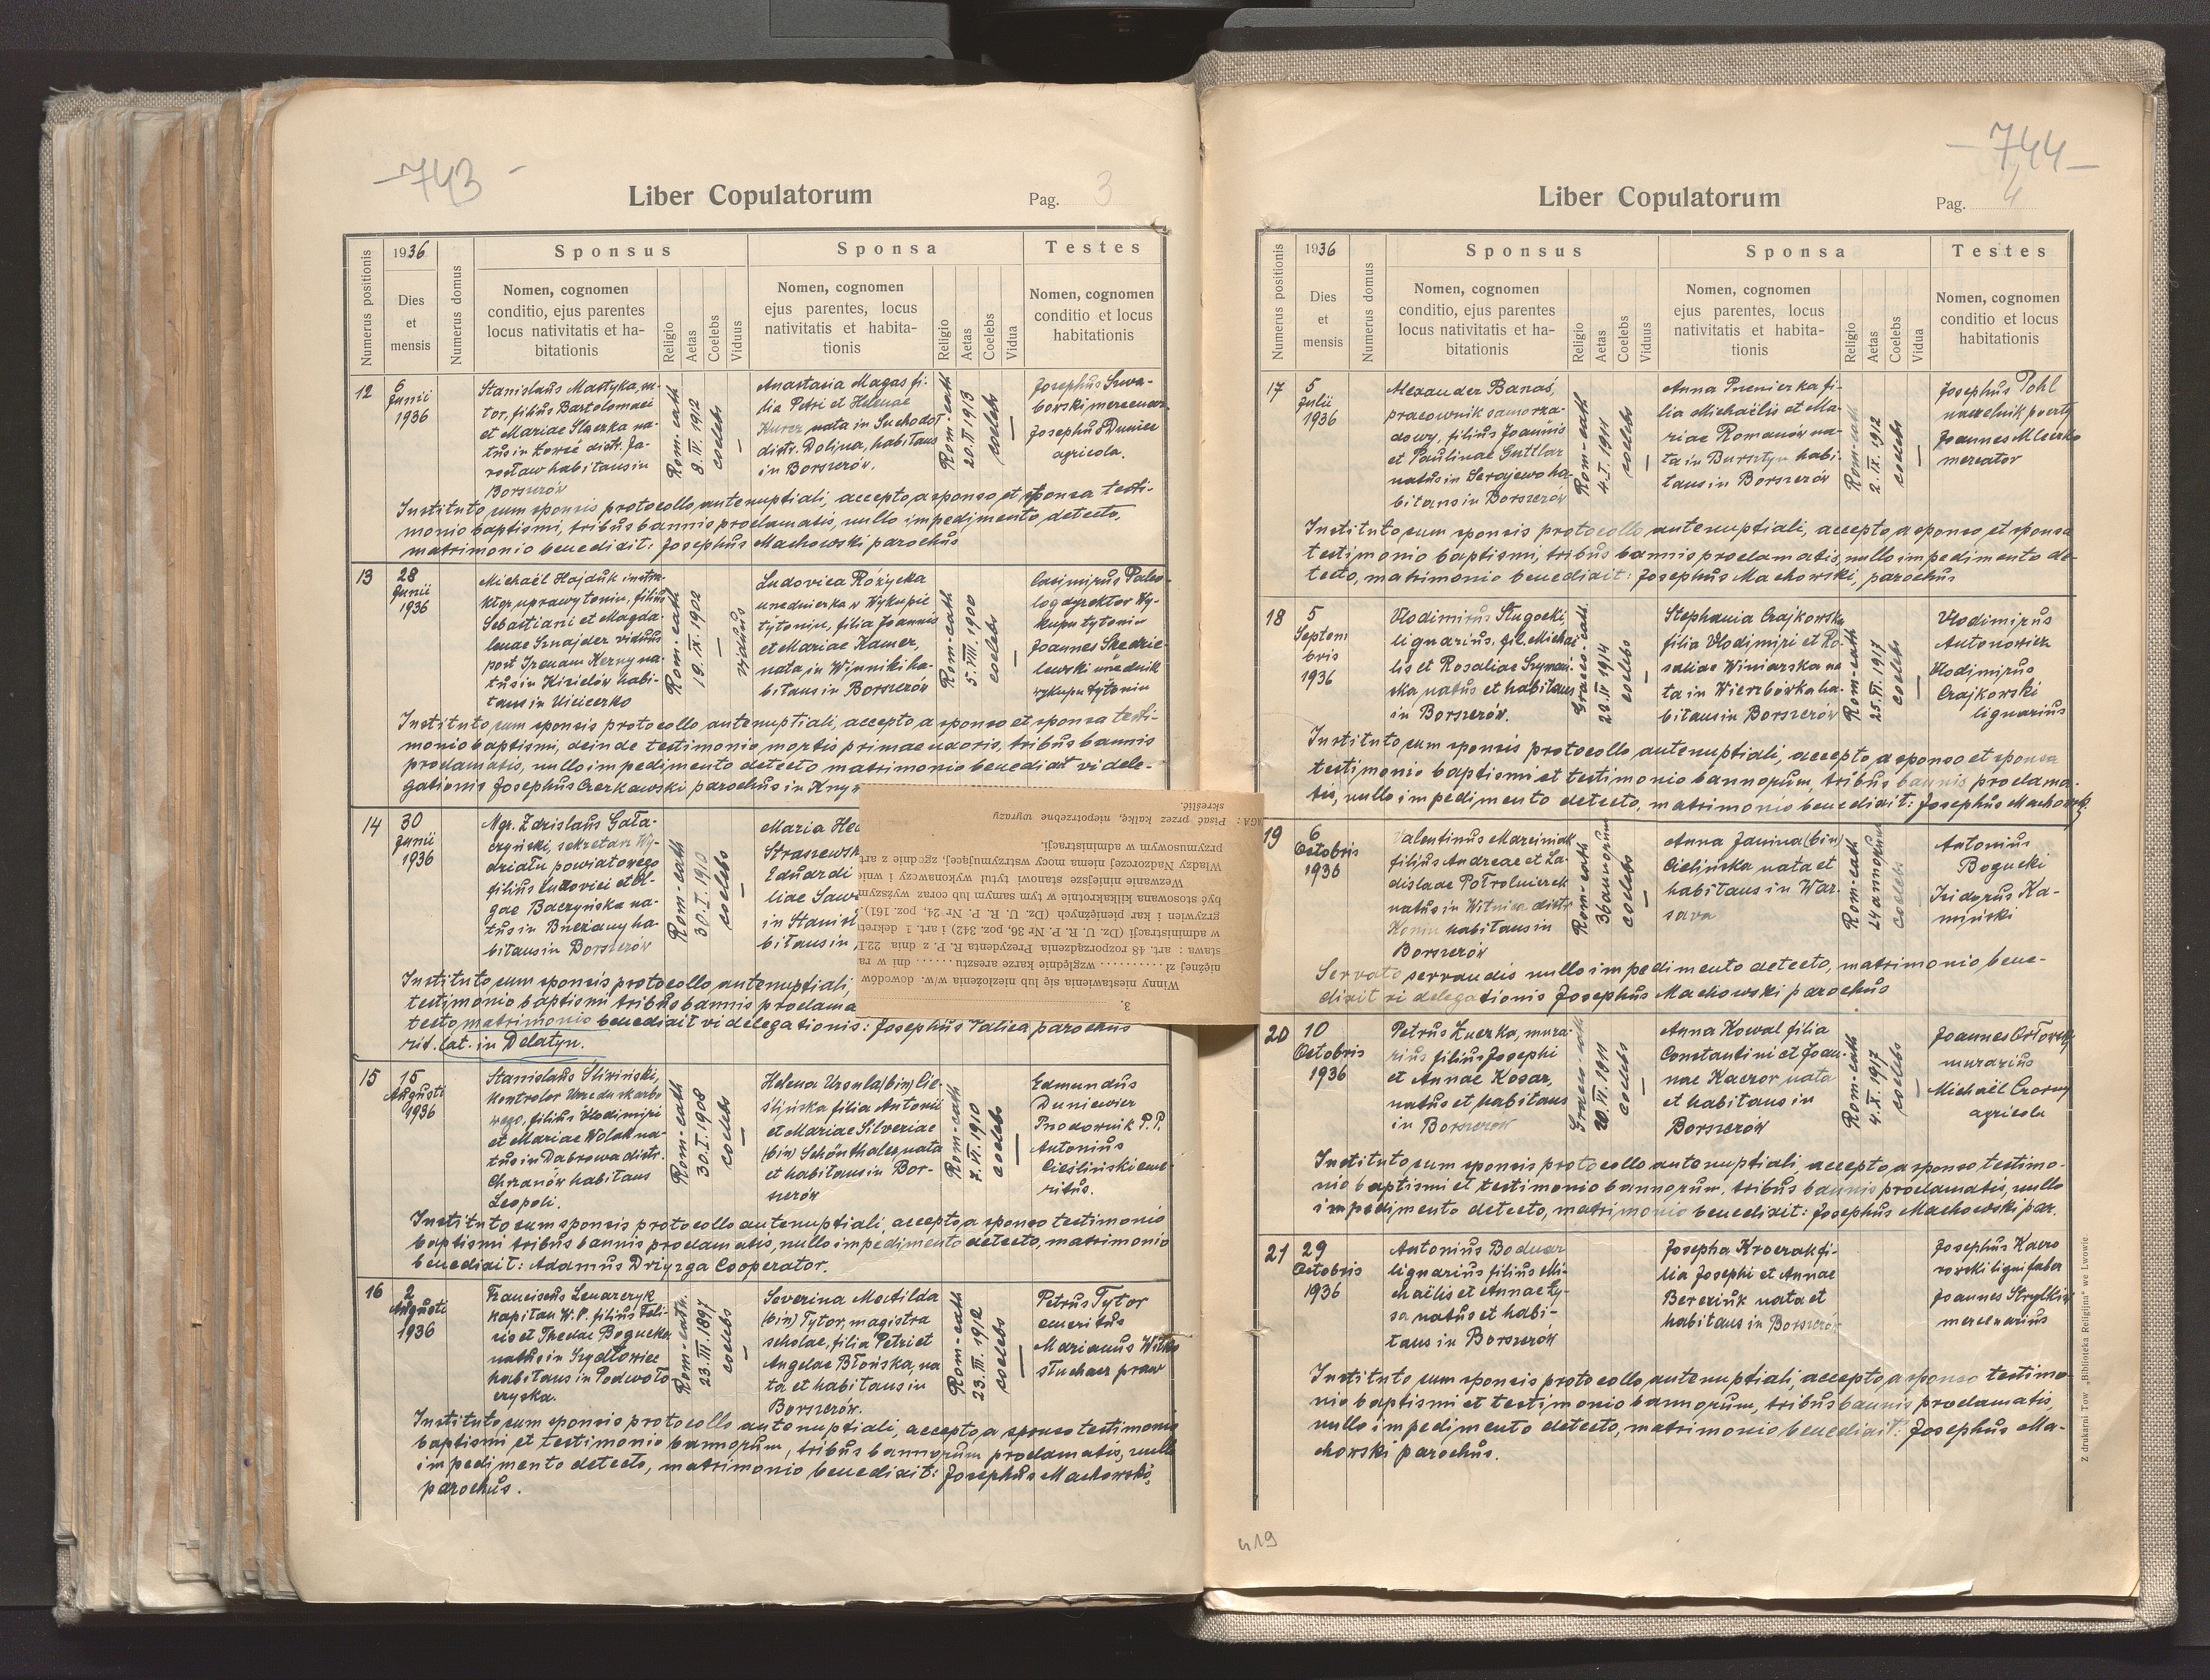 –743–
Liber Copulatorum
Pag. 3
Numerus positionis
1936
Dies
et
mensis
Numerus domus
Sponsus
Nomen, cognomen
conditio, ejus parentes
locus nativitatis et ha-
bitationis
Religio
Aetas
Coelebs
Viduus
Sponsa
Nomen, cognomen
ejus parentes, locus
nativitatis et habita-
tionis
Religio
Aetas
Coelebs
Vidua
Testes
Nomen, cognomen
conditio et locus
habitationis
12
6
Junii
1936
Stanislaus Mastyka,
tor, filius Bartolomaei
et Mariae Slaerka na-
tus in Łowcé distr. Ja-
rosław habitans in
Borszczów
Rom-cath
8.II.1912
coelebs
–
Anastasia Magas fi-
lia Petri et Helenae
nata in Suchodol
distr. Dolina, habitans
in Borszczów.
Rom-cath
20.II.1913
coelebs
–
Josephus Szwa-
borski mercenar.
Josephus Duniec
agricola.
Instituto cum sponsis protocollo antenuptiali, accepto a sponso et sponsa testi-
monio baptismi, tribus bannis proclamatis, nullo impedimento detecto,
matrimonio benedixit: Josephus Machowski parochus
13
28
Junii
1936
Michaël Hajduk instru-
ktor uprawy toniu, filius
Sebastiani et Magda-
lenae Sznajder viduus
post Irenam Kerny na-
tus in Kisielów habi-
tans in
Rom-cath
19.IX.1902
–
viduus
Ludovica Różycka
urzędniczka w Wykupie
tytoniu, filia Joannis
et Mariae Kamer,
nata in Winniki ha-
bitans in Borszczów
Rom-cath
5.VIII.1900
coelebs
–
Casimirus Paleo-
log dyrektor Wy-
kupu tytoniu
Joannes Skedzie-
lewski urzędnik
wykupu tytoniu
Instituto cum sponsis protocollo antenuptiali, accepto a sponso et sponsa testi-
monio baptismi, deinde testimonio mortis primae uxoris, tribus bannis
proclamatis, nullo impedimento detecto matrimonio benedixit vi dele-
gationis Josephus Czerkawski parochus in
14
30
Junii
1936
Mgr. Zdzislaus Gała-
czyński, sekretarz Wy-
działu powiatowego
filius Ludovici et Ol-
gae Baczyńska na-
tus in Brzeżany ha-
bitans in Borszczów
Rom-cath
30.I.1910
coelebs
–
Maria
Straszewsk
Eduardi
liae Saw
in Stanisł
bitans in
Instituto cum sponsis protocollo antenuptiali,
testimonio baptismi tribus bannis proclama
tecto matrimonio benedixit vi delegationis: Josephus Palica parochus
rit. lat. in Delatyn.
3.
Winny niestawienia się lub niezłożenia w/w. dowodów
niężnej zł ........... względnie karze aresztu ...... dni w ra
stawa: art. 48 rozporządzenia Prezydenta R. P. z dnia 22.I
w administracji (Dz. U. R. P. Nr 36, poz. 342) i art. 1 dekretu
grzywien i kar pieniężnych (Dz. U. R. P. Nr 24, poz. 161)
być stosowana kilkakrotnie w tym samym lub coraz wyższym
Wezwanie niniejsze stanowi tytuł wykonawczy i wnie
Władzy Nadzorczej niema mocy wstrzymującej, zgodnie z art
przymusowym w administracji.
AGA: Pisać przez kalkę, niepotrzebne wyrazy
skreślić.
15
15
Augusti
1936
Stanislaus Śliziński,
kontrolor Urzędu skarbo
wego, filius Vlodimiri
et Mariae Wolak na-
tus in Dąbrowa distr.
Chrzanów habitans
Leopoli.
Rom-cath
30.I.1908
coelebs
–
Helena Ursula (bin) Cie-
ślińska filia Antonii
et Mariae Silveriae
(bin) Schönthaler, nata
et habitans in Bor-
szczów
Rom-cath
7.VI.1910
coelebs
–
Edmundus
Duniewicz
Przodownik P.P.
Antonius
Cieśliński eme-
ritus.
Instituto cum sponsis protocollo antenuptiali accepto a sponso testimonio
baptismi tribus bannis proclamatis, nullo impedimento detecto, matrimonio
benedixit: Adamus Drzyzga Cooperator.
16
2
Augusti
1936
Franciscus Lenarczyk
kapitan W.P. filius Feli-
cis et Theclae Bogucka
natus in Szydłowiec
habitans in Podwoło
czyska.
Rom-cath.
23.III.1897
coelebs
–
Severina Matilda
(bin) Tytor, magistra
scholae, filia Petri et
Angelae Błońska, na
ta et habitans in
Borszczów.
Rom-cath
23.III.1912
coelebs
–
Petrus Tytor
emeritus
Marianus Witko
słuchacz praw
Instituto cum sponsis protocollo antenuptiali, accepto a sponso testimonio
baptismi et testimonio bannorum, tribus bannorum proclamatis, nullo
impedimento detecto, matrimonio benedixit: Josephus Machowski,
parochus.
–744–
Liber Copulatorum
Pag. 4
Numerus positionis
1936
Dies
et
mensis
Numerus domus
Sponsus
Nomen, cognomen
conditio, ejus parentes
locus nativitatis et ha-
bitationis
Religio
Aetas
Coelebs
Viduus
Sponsa
Nomen, cognomen
ejus parentes, locus
nativitatis et habita-
tionis
Religio
Aetas
Coelebs
Vidua
Testes
Nomen, cognomen
conditio et locus
habitationis
17
5
Julii
1936
Alexander Banaś,
pracownik samorzą-
dowy, filius Joannis
et Paulinae Guttlar
natus in Serajewo ha-
bitans in Borszczów
Rom-cath
4.I.1911
coelebs
–
Anna Pszenierka fi-
lia Michaëlis et Ma-
riae Romanów na-
ta in Bursztyn habi-
tans in Borszczów
Rom-cath
2.IX.1912
coelebs
–
Josephus Pohl
naczelnik poczty
Joannes Mleczko
mercator
Instituto cum sponsis protocollo antenuptiali, accepto a sponso et sponsa
testimonio baptismi, tribus bannis proclamatis, nullo impedimento de-
tecto, matrimonio benedixit: Josephus Machowski, parochus
18
5
Septem
bris
1936
Vlodimirus Sługocki,
lignarius, fil. Michaë
lis et Rosaliae Szyman-
ska natus et habitans
in Borszczów.
Graeco-cath.
20.IV.1914
coelebs
–
Stephania Czajkowska
filia Vlodimiri et Ro-
saliae Winiarska na
ta in Wierzbówka ha-
bitans in Borszczów
Rom-cath
25.VI.1917
coelebs
–
Vlodimirus
Antonowicz
Vlodimirus
Czajkowski
lignarius
Instituto cum sponsis protocollo antenuptiali, accepto a sponso et sponsa
testimonio baptismi et testimonio bannorum, tribus bannis proclama-
tis, nullo impedimento detecto, matrimonio benedixit: Josephus Machowski
19
6
Octobris
1936
Valentinus Marciniak
filius Andreae et La-
dislaae Półrolniczek
natus in Witnica distr.
Konin habitans in
Borszczów
Rom-cath
36 annorum
coelebs
–
Anna Janina (bin)
Cielińska nata et
habitans in War-
sava
Rom-cath
24 annorum
coelebs
Antonius
Bogucki
Isidorus Ka-
miński
Servato servandis nullo impedimento detecto, matrimonio bene-
dixit vi delegationis Josephus Machowski parochus
20
10
Octobris
1936
Petrus Łuczka, mura-
rius filius Josephi
et Annae Kosar,
natus et habitans
in Borszczów
Graeco-cath
20.VI.1911
coelebs
–
Anna Kowal filia
Constantini et Joan-
nae Kaczor nata
et habitans in
Borszczów
Rom-cath
4.X.1917
coelebs
–
Joannes Orłowsky
murarius
Michaël Czorny
agricola
Instituto cum sponsis protocollo antenuptiali, accepto a sponso testimo-
nio baptismi et testimonio bannorum, tribus bannis proclamatis, nullo
impedimento detecto, matrimonio benedixit: Josephus Machowski par.
21
29
Octobris
1936
Antonius Bodnar
lignarius filius Mi-
chaëlis et Annae Ły-
sa natus et habi-
tans in Borszczów
Josepha Kroczak fi-
lia Josephi et Annae
Bereziuk nata et
habitans in Borszczów
Josephus Kacro
rowski ligni faber
Joannes Strylkiw
mercenarius
Instituto cum sponsis protocollo antenuptiali, accepto a sponso testimo
nio baptismi et testimonio bannorum, tribus bannis proclamatis,
nullo impedimento detecto, matrimonio benedixit: Josephus Ma-
chowski parochus.
419
Z drukarni Tow „Biblioteka Religijna" we Lwowie.